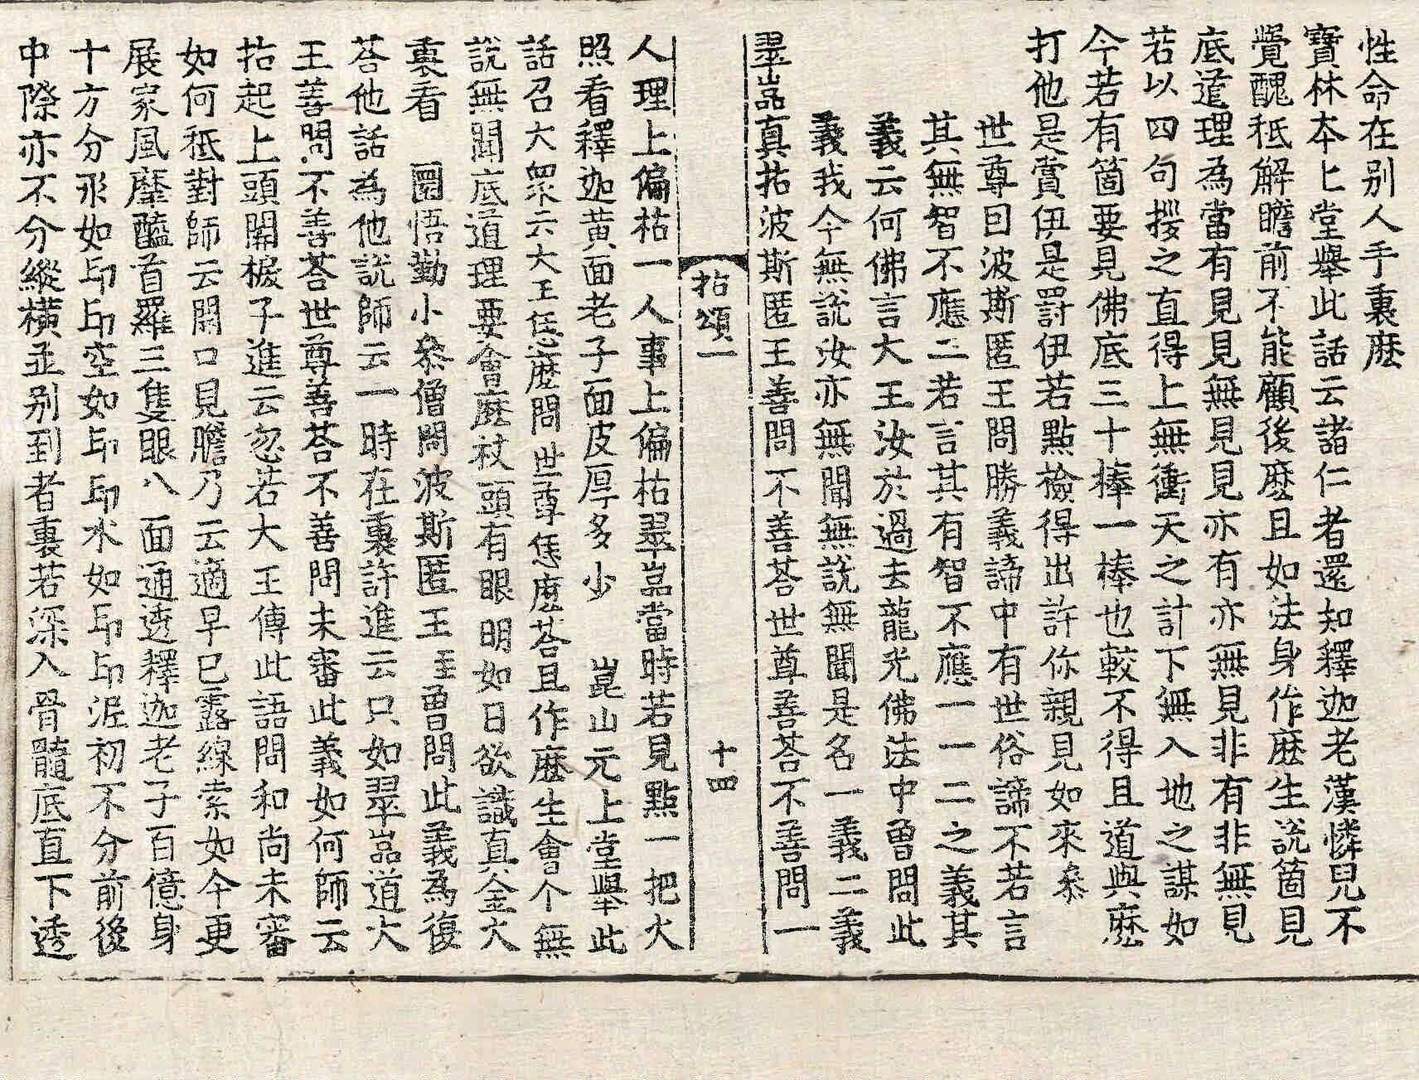 性命在别人手裏麽
寶林本上堂舉此話云諸仁者還知釋迦老漢憐兒不
覺醜秪解瞻前不能顧後麽且如法身作麽生說箇見
底道理為當有見見無見見亦有亦無見非有非無見
若以四句捘之直得上無衝天之計下無入地之謀如
今若有箇要見佛底三十棒一棒也較不得且道與麽
打他是賞伊是罸伊若點檢得出許你親見如來叅
世尊因波斯匿王問勝義諦中有世俗諦不若言
其無智不應二若言其有智不應一一二之義其
義云何佛言大王汝於過去龍光佛法中曾問此
義我今無說汝亦無聞無說無聞是名一義二義
翠嵓真拈波斯匿王善問不善荅世尊善荅不善問一
拈頌一
十四
人理上偏枯一人事上偏枯翠嵓當時若見點一把火
照看釋迦黃面老子面皮厚多少　崑山元上堂舉此
話召大衆云大王恁麽問世尊恁麽荅且作麽生會个無
說無聞底道理要會麽杖頭有眼明如日欲識真金火
裏看　圜悟勤小叅僧問波斯匿王至曾問此義為復
荅他話為他說師云一時在裏許進云只如翠嵓道大
王善問不善荅世尊善荅不善問未審此義如何師云
拈起上頭關棙子進云忽若大王傳此語問和尚未審
如何秪對師云開口見膽乃云適早已露線索如今更
展家風摩醯首羅三隻眼八面通透釋迦老子百億身
十方分形如印印空如印印水如印印泥初不分前後
中際亦不分縱橫並别到者裏若深入骨髓底直下透